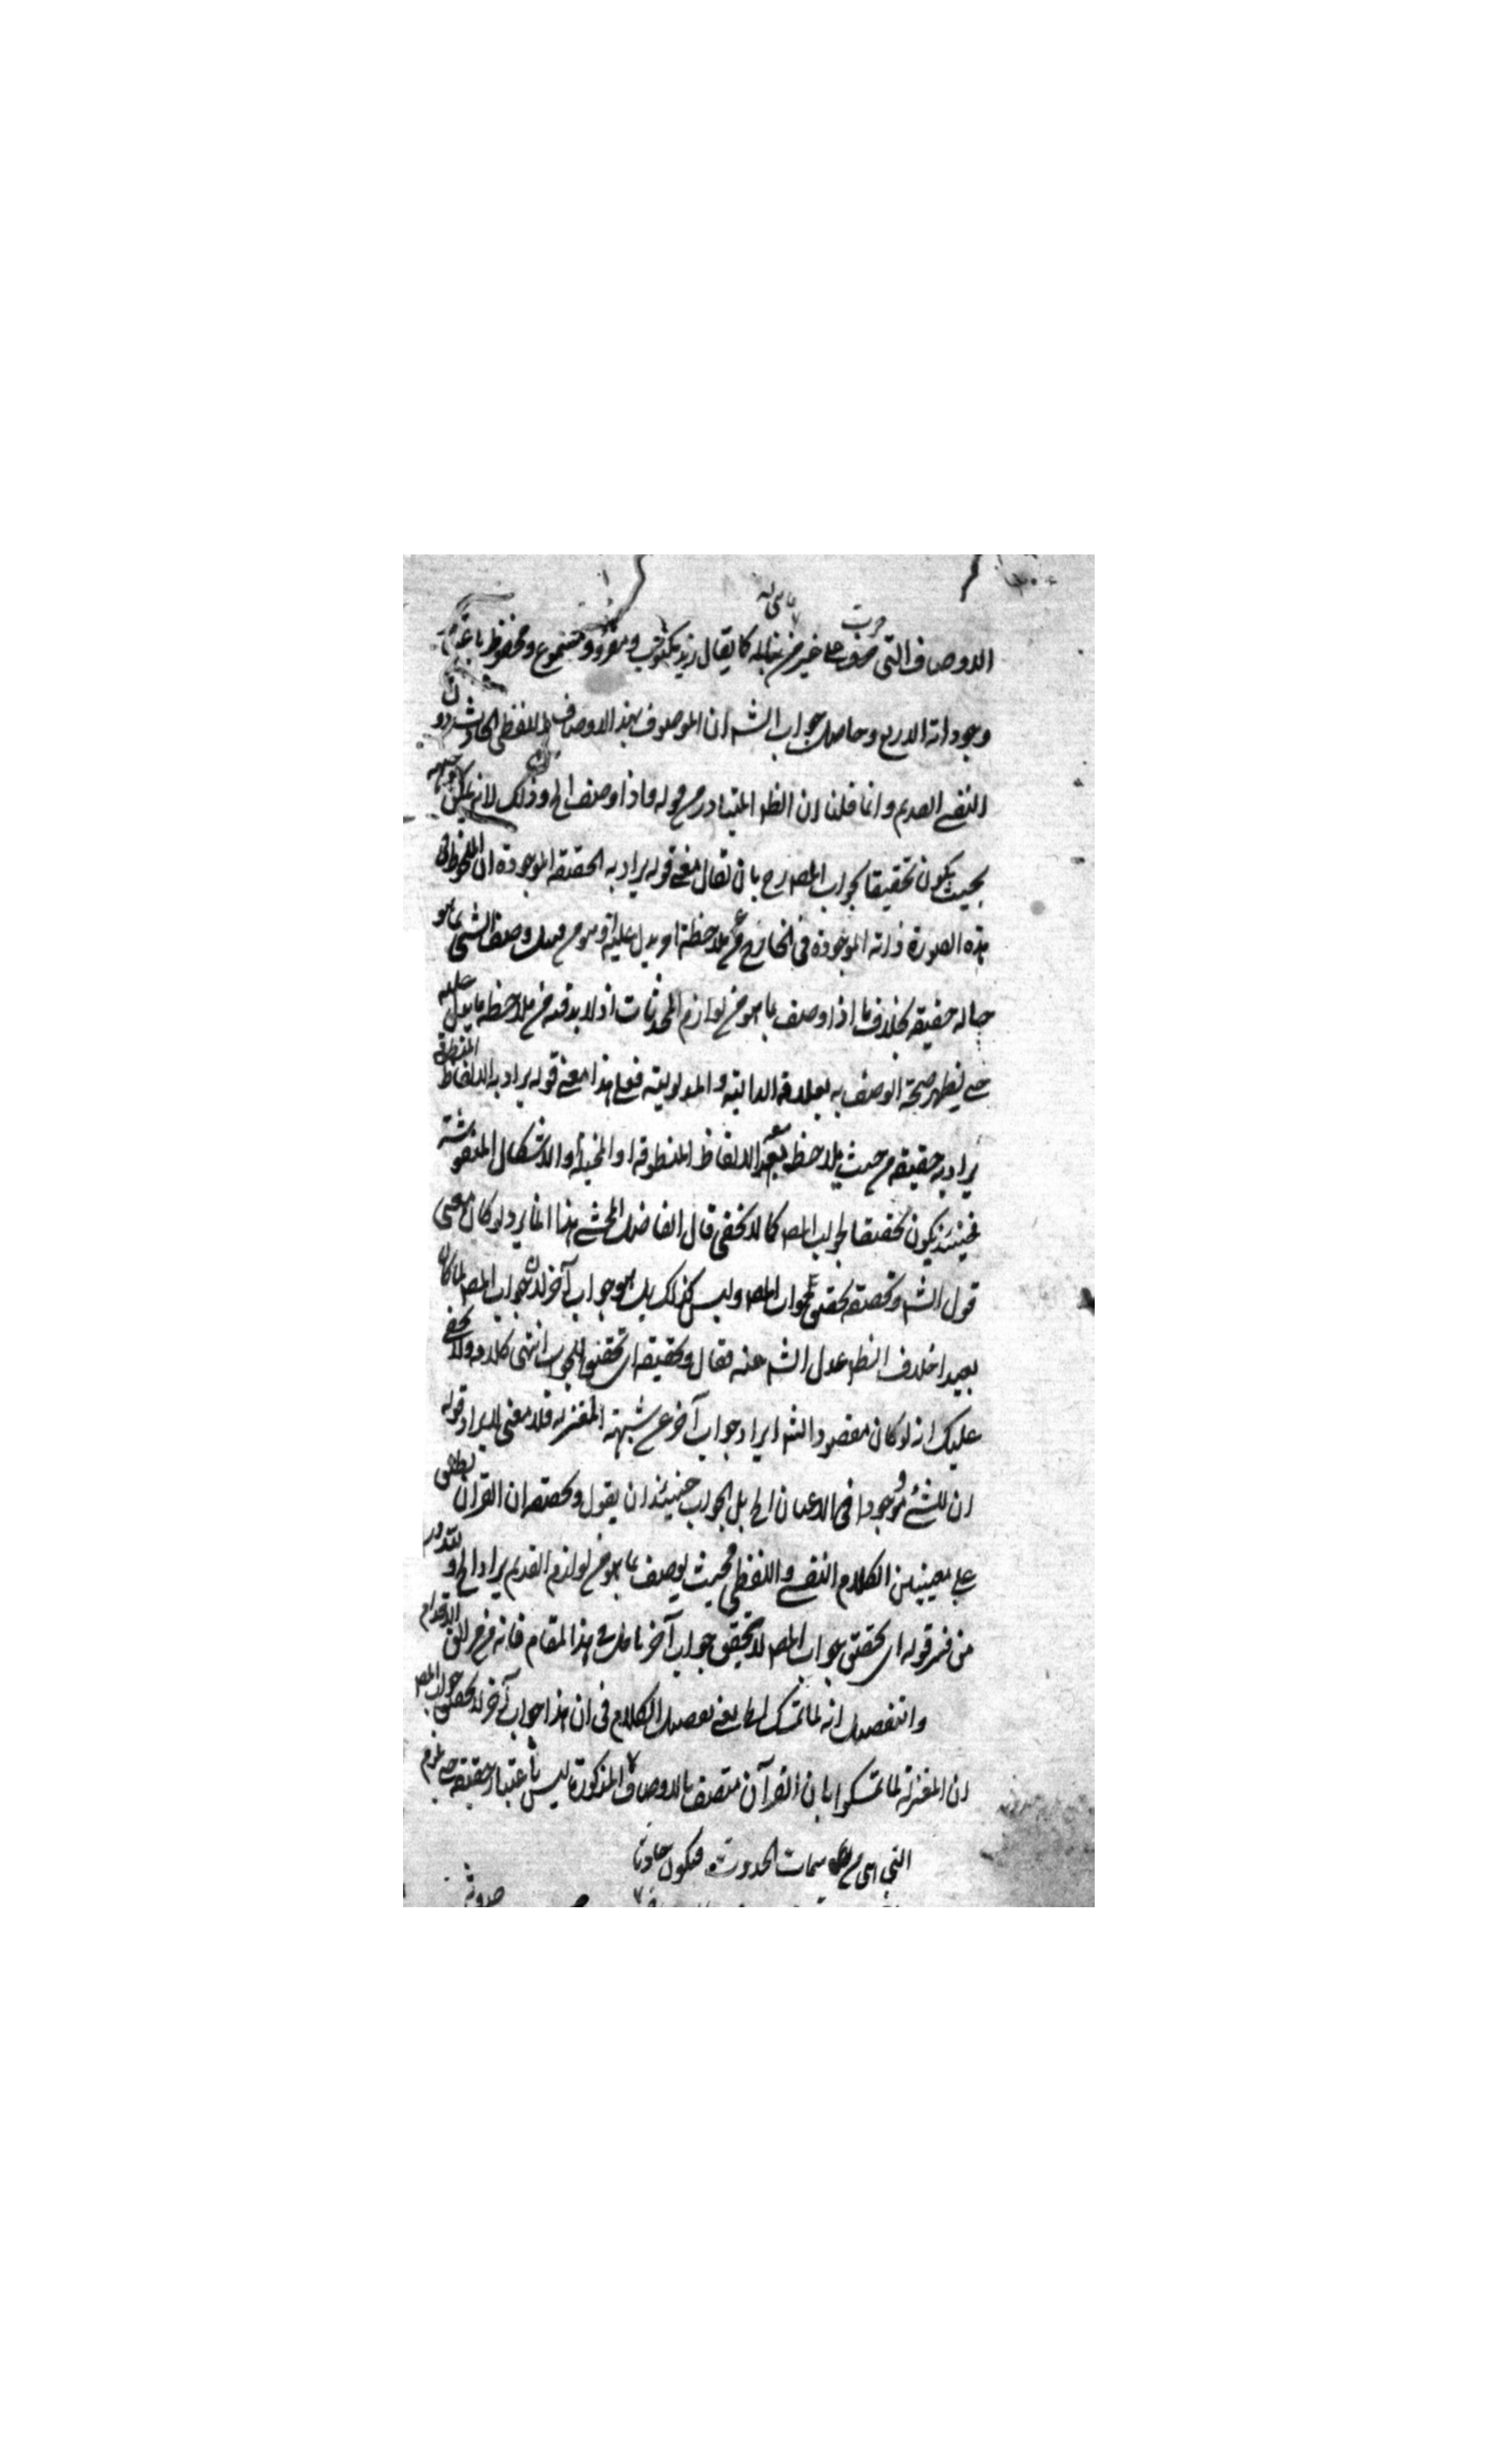 الاوصاف التي جرت على غير من هي له كما يقال زيد مكتوب ومقروو مسموع ومحفوظ باعتبار
وجوداته الاربع وحاصل جواب الشه ان الموصوف بهذه الاوصاف اللفظي الحادث دون
النفسي القديم وانما قلنا ان الظه المتبادر من قوله فاذا وصف الخ وذلك لانه يمكن توجيهه
بحيث يكون تحقيقا لجواب المصه رح بان يقال معنى قوله يراد به الحقيقة الموجودة ان الملحوظ في
هذه الصورة ذاته الموجودة في الخارج من غير ملاحظة امر يدل عليه وهو من قبيل وصف الشي بما هو
حاله حقيقة بخلاف ما اذا وصف بما هو من لوازم المحدثات اذ لا بد فيه من ملاحظة ما يدل عليه
حتى يظهر صحة الوصف به بعلاقة الدالية والمدلولية فعلى هذا معنى قوله يراد به الالفاظ المنطوقة
يراد به حقيقة من حيث يلاحظ بعد الالفاظ المنطوقة او المخيلة او الاشكال المنقوشة
فحينئذ يكون تحقيقا لجواب المصه كما لا يخفى قال الفاضل المحشي هذا انما يرد لو كان معنى
قول الشه وتحقيقه تحقيق جواب المصه وليس كذلك بل هو جواب آخر لان جواب المصه لما كان
بعيدا خلاف الظه عدل الشه عنه فقال وتحقيقه اي تحقيق الجواب انتهى كلامه ولا يخفى
عليك انه لو كان مقصود الشه ايراد جواب آخر عن شبهة المعتزله فلا معنى لايراد قوله
ان للشئ وجودا في الاعيان الخ بل الجواب حينئذ ان يقول وتحقيقه ان القران يطلق
على معنيين الكلام النفسي واللفظي فحيث يوصف بما هو من لوازم القديم يراد الخ ولله در
من فسر قوله اي تحقيق جواب المصه لا تحقيق جواب آخر تامل في هذا المقام فانه من مزالق الاقدام
والتفصيل انه لما تمسك الخ يعني تفصيل الكلام في ان هذا جواب آخر لا تحقيق جواب المصه
ان المعتزلة لما تمسكوا بان القرآن متصف بالاوصاف المذكورة ليس باعتبار حقيقته حتى يلزم
التي هي من سمات الحدوث فيكون حادثا
حدوثه